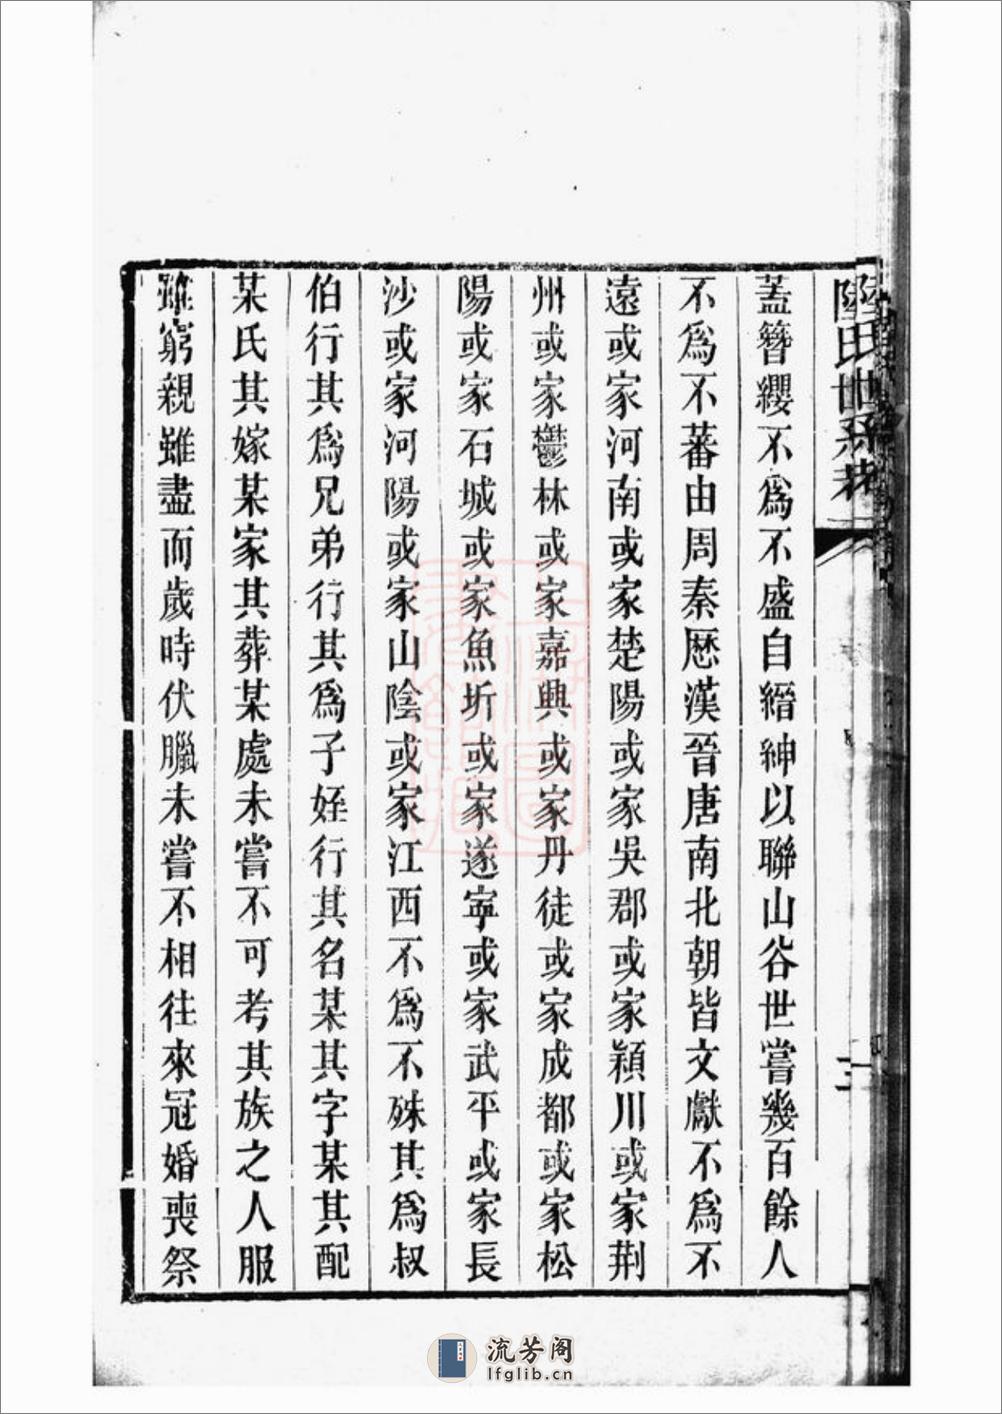 陸氏世系
蓋簪纓不爲不盛自縉紳以聯山谷世嘗幾百餘人
不爲不蕃由周秦歷漢晉唐南北朝皆文獻不爲不
遠或家河南或家楚陽或家吳郡或家潁川或家荆
州或家鬱林或家嘉興或家丹徒或家成都或家松
陽或家石城或家魚圻或家遂寧或家武平或家長
沙或家河陽或家山陰或家江西不爲不殊其爲叔
伯行其爲兄弟行其爲子姪行其名某其字某其配
某氏其嫁某家其葬某處未嘗不可考其族之人服
雖窮親雖盡而歲時伏臘未嘗不相往來冠婚喪祭
流芳阁
lfglib.cn